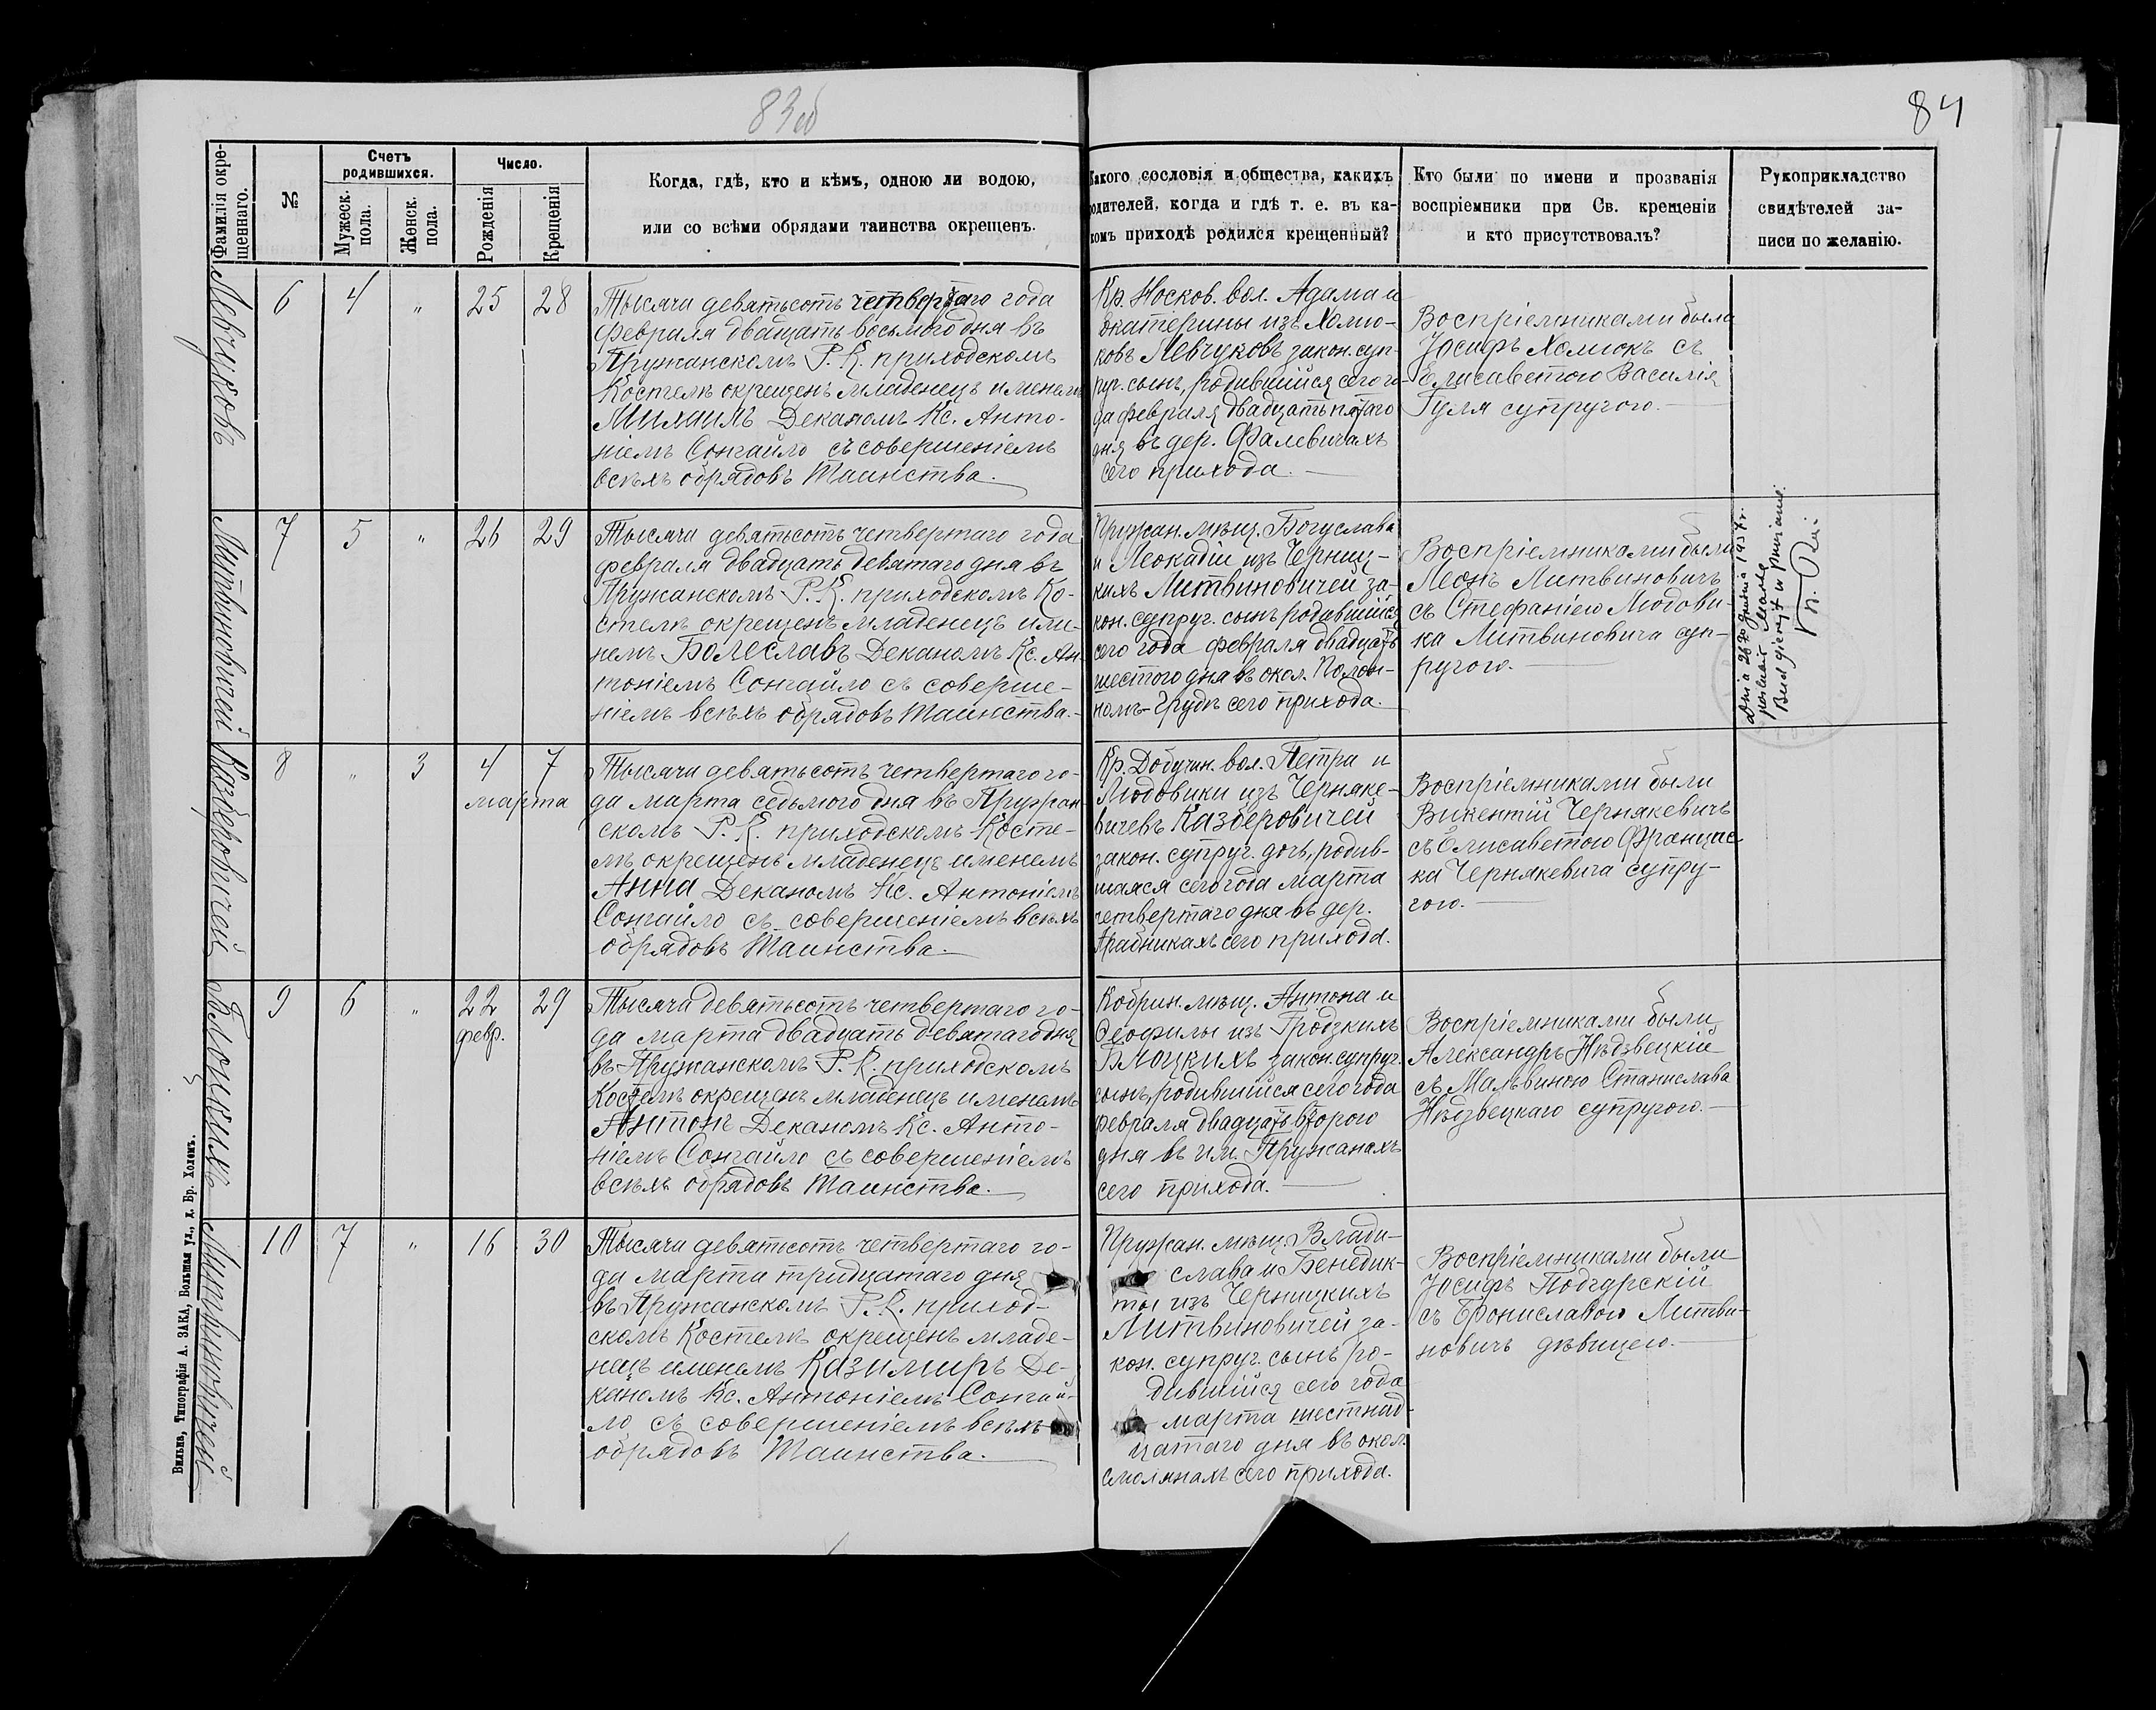 83об
84
Фамилія окре-
щеннаго.
№
Счетъ
родившихся.
Мужеск.
пола.
Женск.
пола.
Число.
Рожденія
Крещенія
Когда, гдѣ, кто и кѣмъ, одною ли водою,
или со всѣми обрядами таинства окрещенъ.
Какого сословія и общества, какихъ
родителей, когда и гдѣ т. е. въ ка-
комъ приходѣ родился крещенный?
Кто были по имени и прозванія
воспріемники при Св. крещеніи
и кто присутствовалъ?
Рукоприкладство
свидѣтелей за-
писи по желанію.
Левчуковъ
6
4
"
25
28
Тысяча девятьсотъ четвертаго года
февраля двадцать восьмого дня въ
Пружанскомъ Р. К. приходскомъ
Костелѣ окрещенъ младенецъ именемъ
Михаилъ Деканомъ Кс. Анто-
ніемъ Сонгайло съ совершеніемъ
всѣхъ обрядовъ Таинства.
Кр. Носков. вол. Адама и
Екатерины изъ Хомю-
ковъ Левчуковъ закон. суп-
руг. сынъ, родившійся сего го-
да февраля двадцать пятаго
дня въ дер. Фалевичахъ
сего прихода.
Воспріемниками были
Іосифъ Хомюкъ съ
Елисаветою Василія
Гуля супругою.
Литвиновичей
7
5
"
26
29
Тысяча девятьсотъ четвертаго года
февраля двадцать девятаго дня въ
Пружанскомъ Р. К. приходскомъ Ко-
стелѣ окрещенъ младенецъ име-
немъ Болеславъ Деканомъ Кс. Ан-
тоніемъ Сонгайло съ соверше-
ніемъ всѣхъ обрядовъ Таинства.
Пружан. мѣщ. Богуслава
и Леокадіи изъ Черниц-
кихъ Литвиновичей за-
кон. супруг. сынъ родившійся
сего года февраля двадцать
шестого дня въ окол. Полон-
номъ-Грудѣ сего прихода.
Воспріемниками были
Леонъ Литвиновичъ
съ Стефаніею Людови-
ка Литвиновича суп-
ругою.
Dnia 26 go 1937 r.
Казберовичей
8
"
3
4
7
марта
Тысяча девятьсотъ четвертаго го-
да марта седьмого дня въ Пружан-
скомъ Р. К. приходскомъ Косте-
лѣ окрещенъ младенецъ именемъ
Анна Деканомъ Кс. Антоніемъ
Сонгайло съ совершеніемъ всѣхъ
обрядовъ Таинства.
Кр. Добучин. вол. Петра и
Людовики изъ Черняке-
вичевъ Казберовичей
закон. супруг. дочь, родив-
шаяся сего года марта
четвертаго дня въ дер.
Арабникахъ сего прихода.
Воспріемниками были
Викентій Чернякевичъ
съ Елисаветою Францис-
ка Чернякевича супру-
гою.
Блоцкихъ
9
6
"
22
29
февр.
Тысяча девятьсотъ четвертаго го-
да марта двадцать девятаго дня
въ Пружанскомъ Р. К. приходскомъ
Костелѣ окрещенъ младенецъ именемъ
Антонъ Деканомъ Кс. Анто-
ніемъ Сонгайло съ совершеніемъ
всѣхъ обрядовъ Таинства.
Кобрин. мѣщ. Антона и
Теофилы изъ Гродзкихъ
Блоцкихъ закон. супруг.
сынъ, родившійся сего года
февраля двадцать второго
дня въ им. Пружанахъ
сего прихода.
Воспріемниками были
Александръ Нѣдзвецкій
съ Мальвиною Станислава
Нѣдзвецкаго супругою.
Литвиновичей
10
7
"
16
30
Тысяча девятьсотъ четвертаго го-
да марта тридцатаго дня
въ Пружанскомъ Р. К. приход-
скомъ Костелѣ окрещенъ младе-
нецъ именемъ Казимиръ Де-
каномъ Кс. Антоніемъ Сонгай-
ло съ совершеніемъ всѣхъ
обрядовъ Таинства.
Пружан. мѣщ. Влади-
слава и Бенедик-
ты изъ Черницкихъ
Литвиновичей за-
кон. супруг. сынъ ро-
дившійся сего года
марта шестнад-
цатаго дня въ окол.
Смолянахъ сего прихода.
Воспріемниками были
Іосифъ Подгурскій
съ Брониславою Литви-
новичъ дѣвицею.
Вильна, Типографія А. ЗАКА, Большая ул., д. Бр. Холемъ.